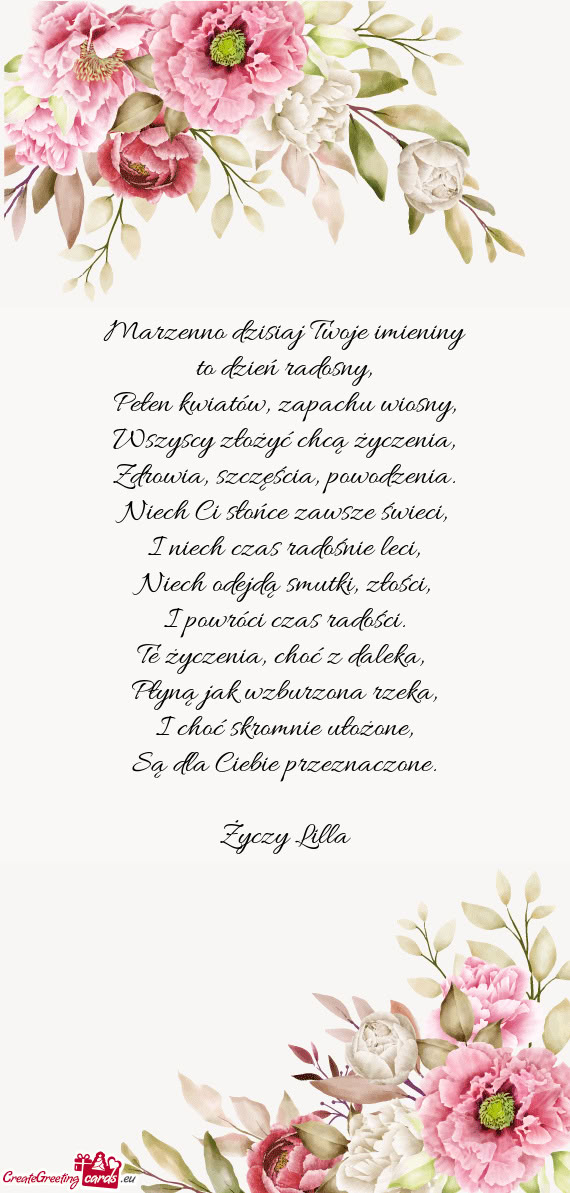 Marzenno dzisiaj Twoje imieniny
to dzień radosny,
Pełen kwiatów, zapachu wiosny,
Wszyscy złożyć chcą życzenia,
Zdrowia, szczęścia, powodzenia.
Niech Ci słońce zawsze świeci,
I niech czas radośnie leci,
Niech odejdą smutki, złości,
I powróci czas radości.
Te życzenia, choć z daleka,
Płyną jak wzburzona rzeka,
I choć skromnie ułożone,
Są dla Ciebie przeznaczone.
Życzy Lilla
CreateGreeting cards .eu